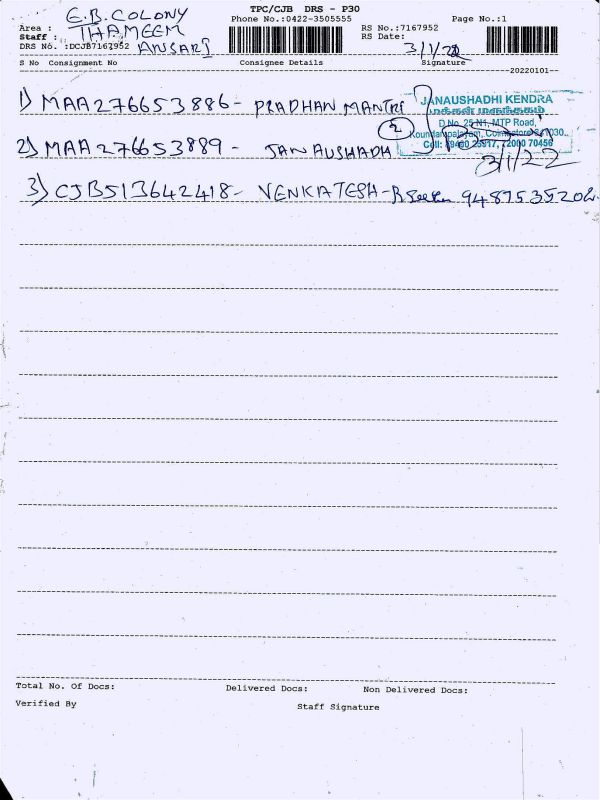 TPC/CJB DRS - P30
E.B. COLONY
Phone No.:0422-3505555
Page No.:1
Area :
THAMEEM
RS No.:7167952
Staff :
RS Date:
3/1/22
DRS No. :DCJB7167952
ANSARI
S No Consignment No Consignee Details Signature
20220101
1) MAA276653886 - PRADHAN MANTRI
JANAUSHADHI KENDRA
மக்கள் மருந்தகம்
D.No. 25-N1, MTP Road,
Koundampalayam, Coimbatore
2
2) MAA276653889 - JAN AUSHADH
3/1/22
3) CJB513642418 - VENKATESH - 9487535202
Total No. Of Docs: Delivered Docs: Non Delivered Docs:
Verified By Staff Signature